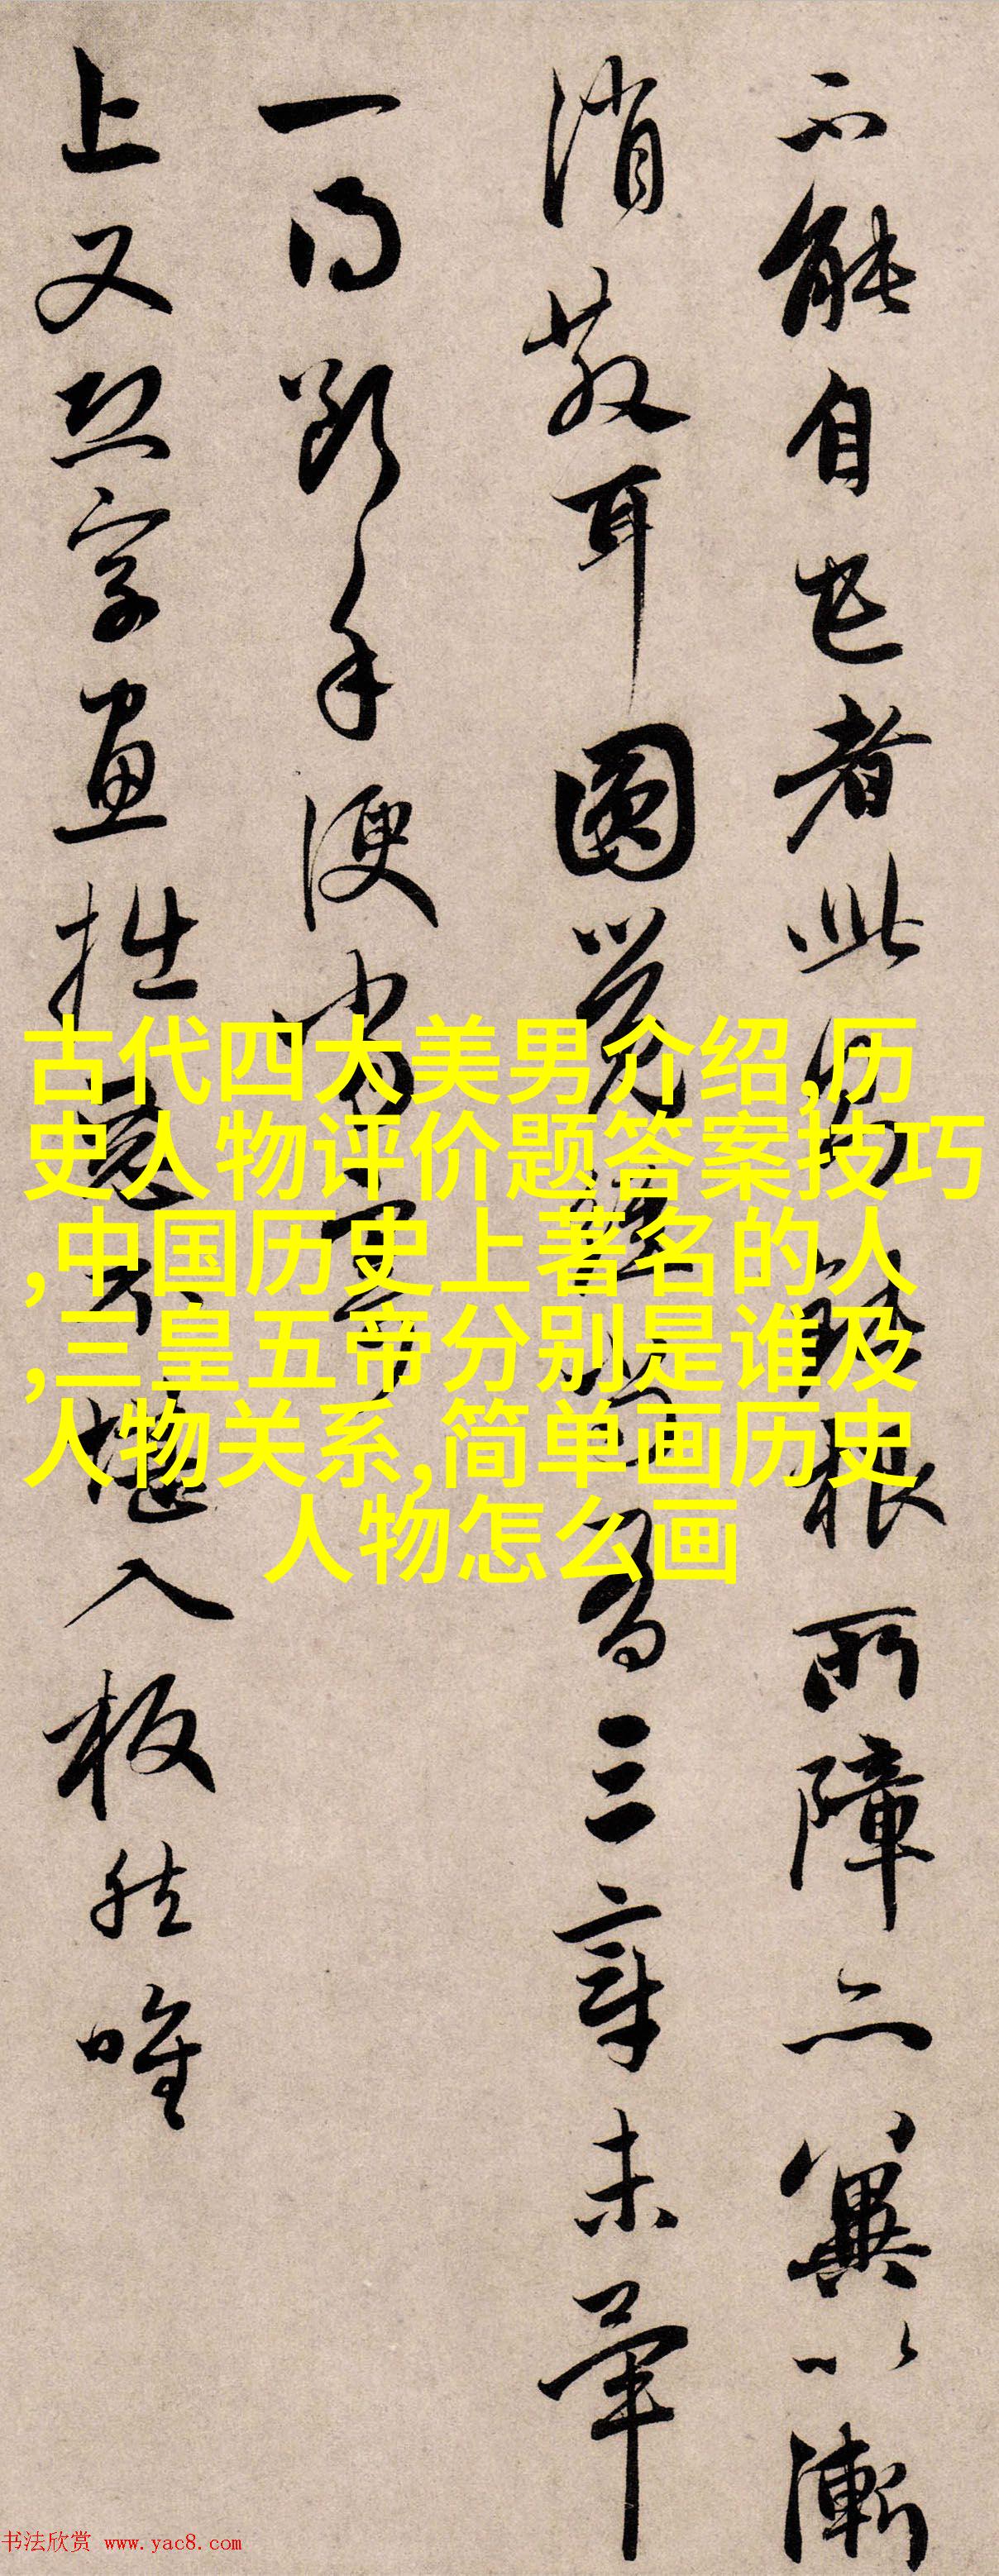 不能自已者此根所障亦冀以漸
消散耳圓覺三章未畢
一得斷手便當寄
上又恐字畫拙惡不堪入板然唯
古代四大美男介绍,历
史人物评价题答案技巧
,中国历史上著名的人
,三皇五帝分别是谁及
人物关系,简单画历史
人物怎么画
书法欣赏 www.yac8.com